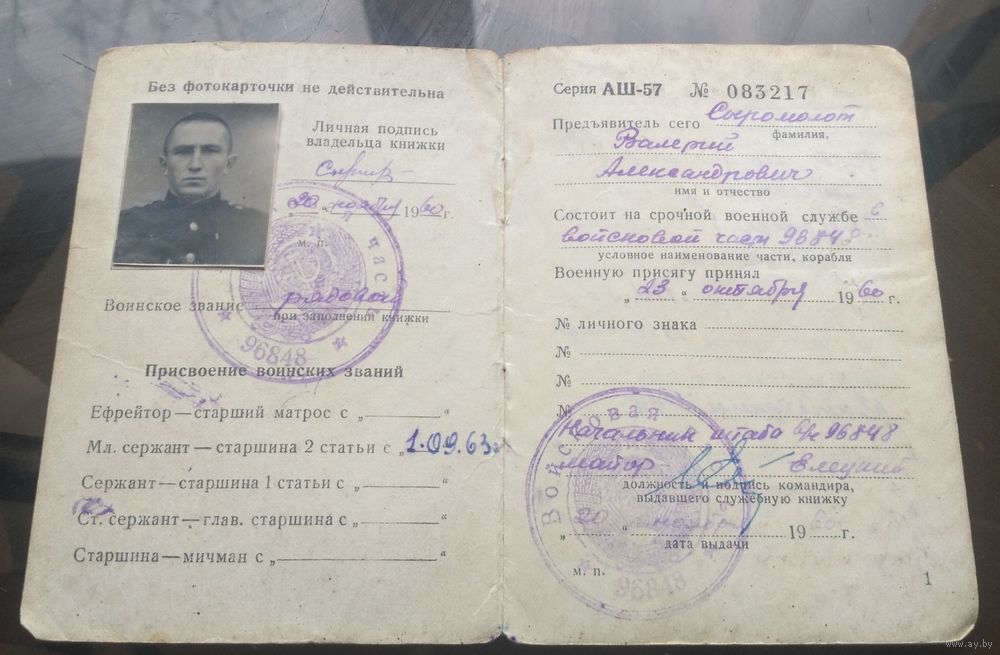 Без фотокарточки не действительна
Личная подпись
владельца книжки
„20“ ноября 1960г.
м. п.
Воинское звание рядовой
при заполнении книжки
Присвоение воинских званий
Ефрейтор—старший матрос с „ “
Мл. сержант—старшина 2 статьи с „1.09.63г.
Сержант—старшина 1 статьи с „ “
Ст. сержант—глав. старшина с „ “
Старшина—мичман с „ “
часть
96848
Серия АШ-57 № 083217
Предъявитель сего Сыромолот
фамилия,
Валерий
Александрович
имя и отчество
Состоит на срочной военной службе в
войсковой части 96848
условное наименование части, корабля
Военную присягу принял
„23“ октября 1960г.
№ личного знака
№
№
№
Начальник штаба в/ч 96848
майор Елецкий
должность и подпись командира,
выдавшего служебную книжку
„20“ ноября 1960г.
дата выдачи
м. п.
Войсковая
96848
1
www.ay.by